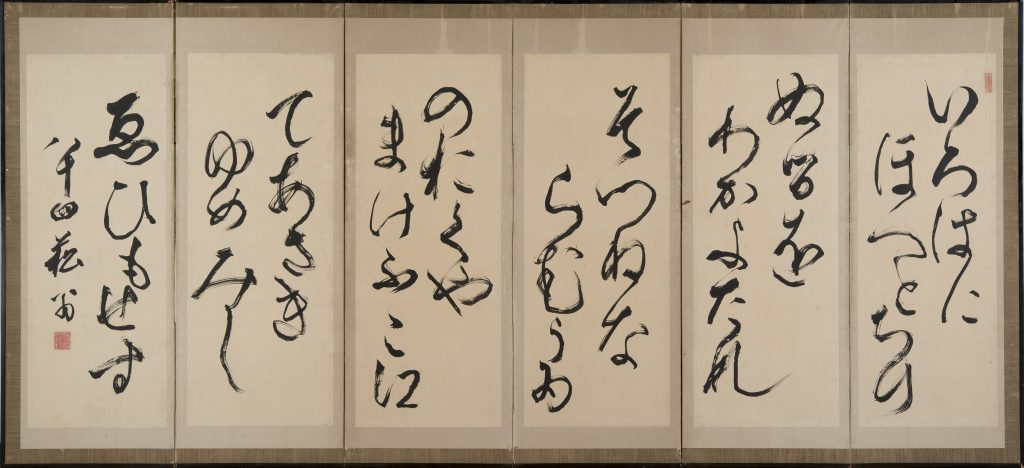 いろはに
ほへとちり
ぬ留遠
わかよたれ
そつねな
らむうゐ
のおくや
まけふこ江
てあさき
ゆめみし
ゑひもせす
八十四菘翁